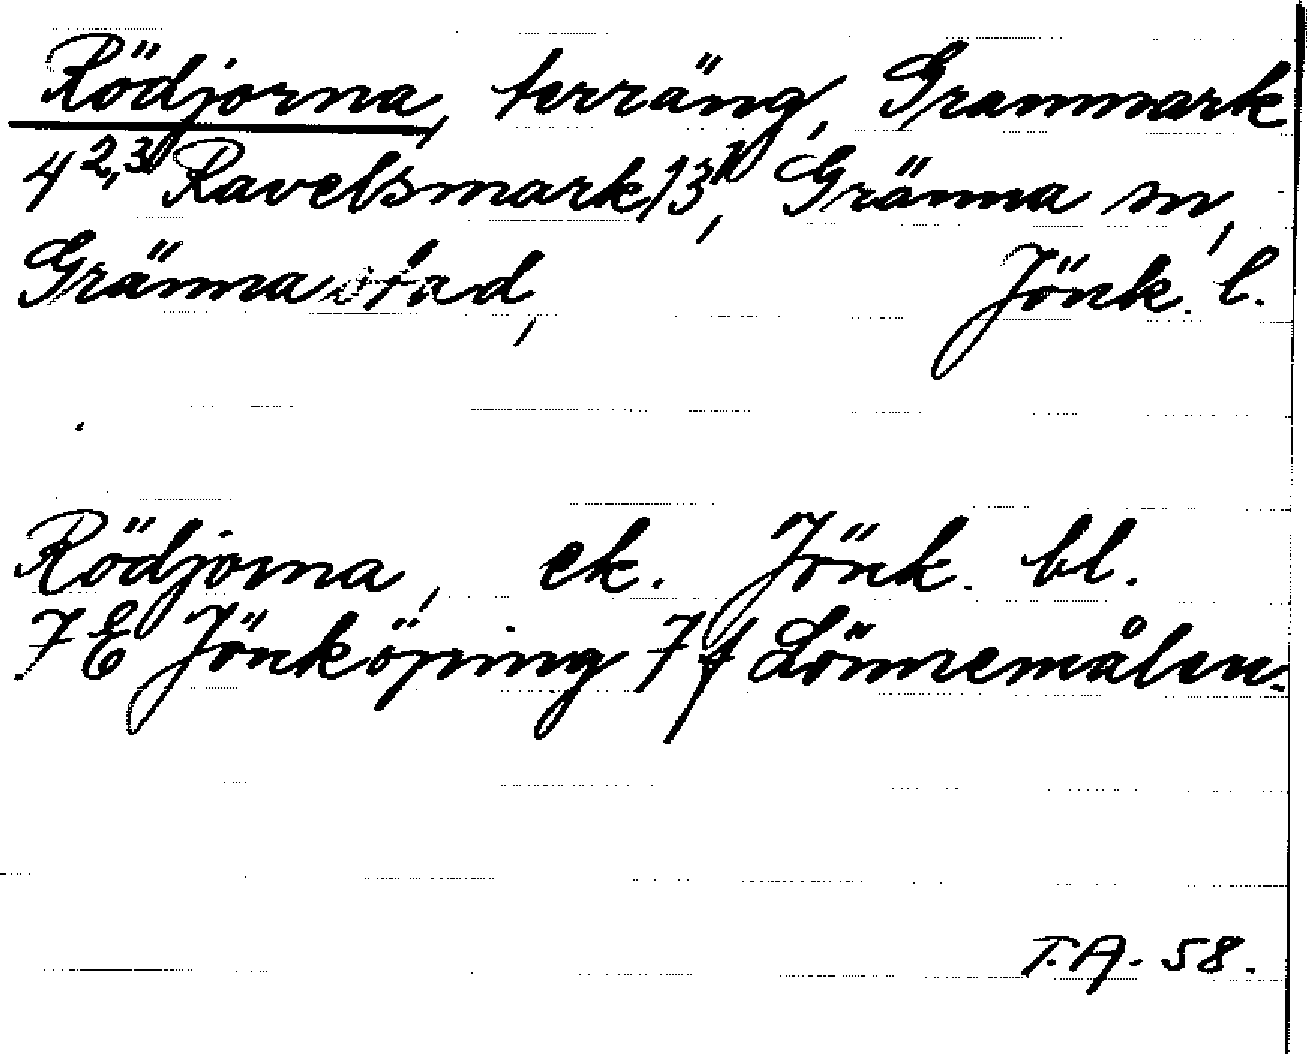 Rödjorna, terräng, Granmark
4 2,3 Ravelsmark 13 1, Gränna sn,
Gränna stad, Jönk. l.
Rödjorna, ek. Jönk. bl.
7 E Jönköping 7 f Lönnemålen.
T.A. 58.